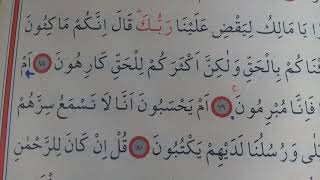 يَا مَالِكُ لِيَقْضِ عَلَيْنَا رَبُّكَ قَالَ اِنَّكُمْ مَاكِثُونَ
ـنَاكُمْ بِالْحَقِّ وَلٰكِنَّ اَكْثَرَكُمْ لِلْحَقِّ كَارِهُونَ ٧٨ اَمْ
فَاِنَّا مُبْرِمُونَ ٧٩ اَمْ يَحْسَبُونَ اَنَّا لَا نَسْمَعُ سِرَّهُمْ
ـلٰى وَرُسُلُنَا لَدَيْهِمْ يَكْتُبُونَ ٨٠ قُلْ اِنْ كَانَ لِلرَّحْمٰنِ